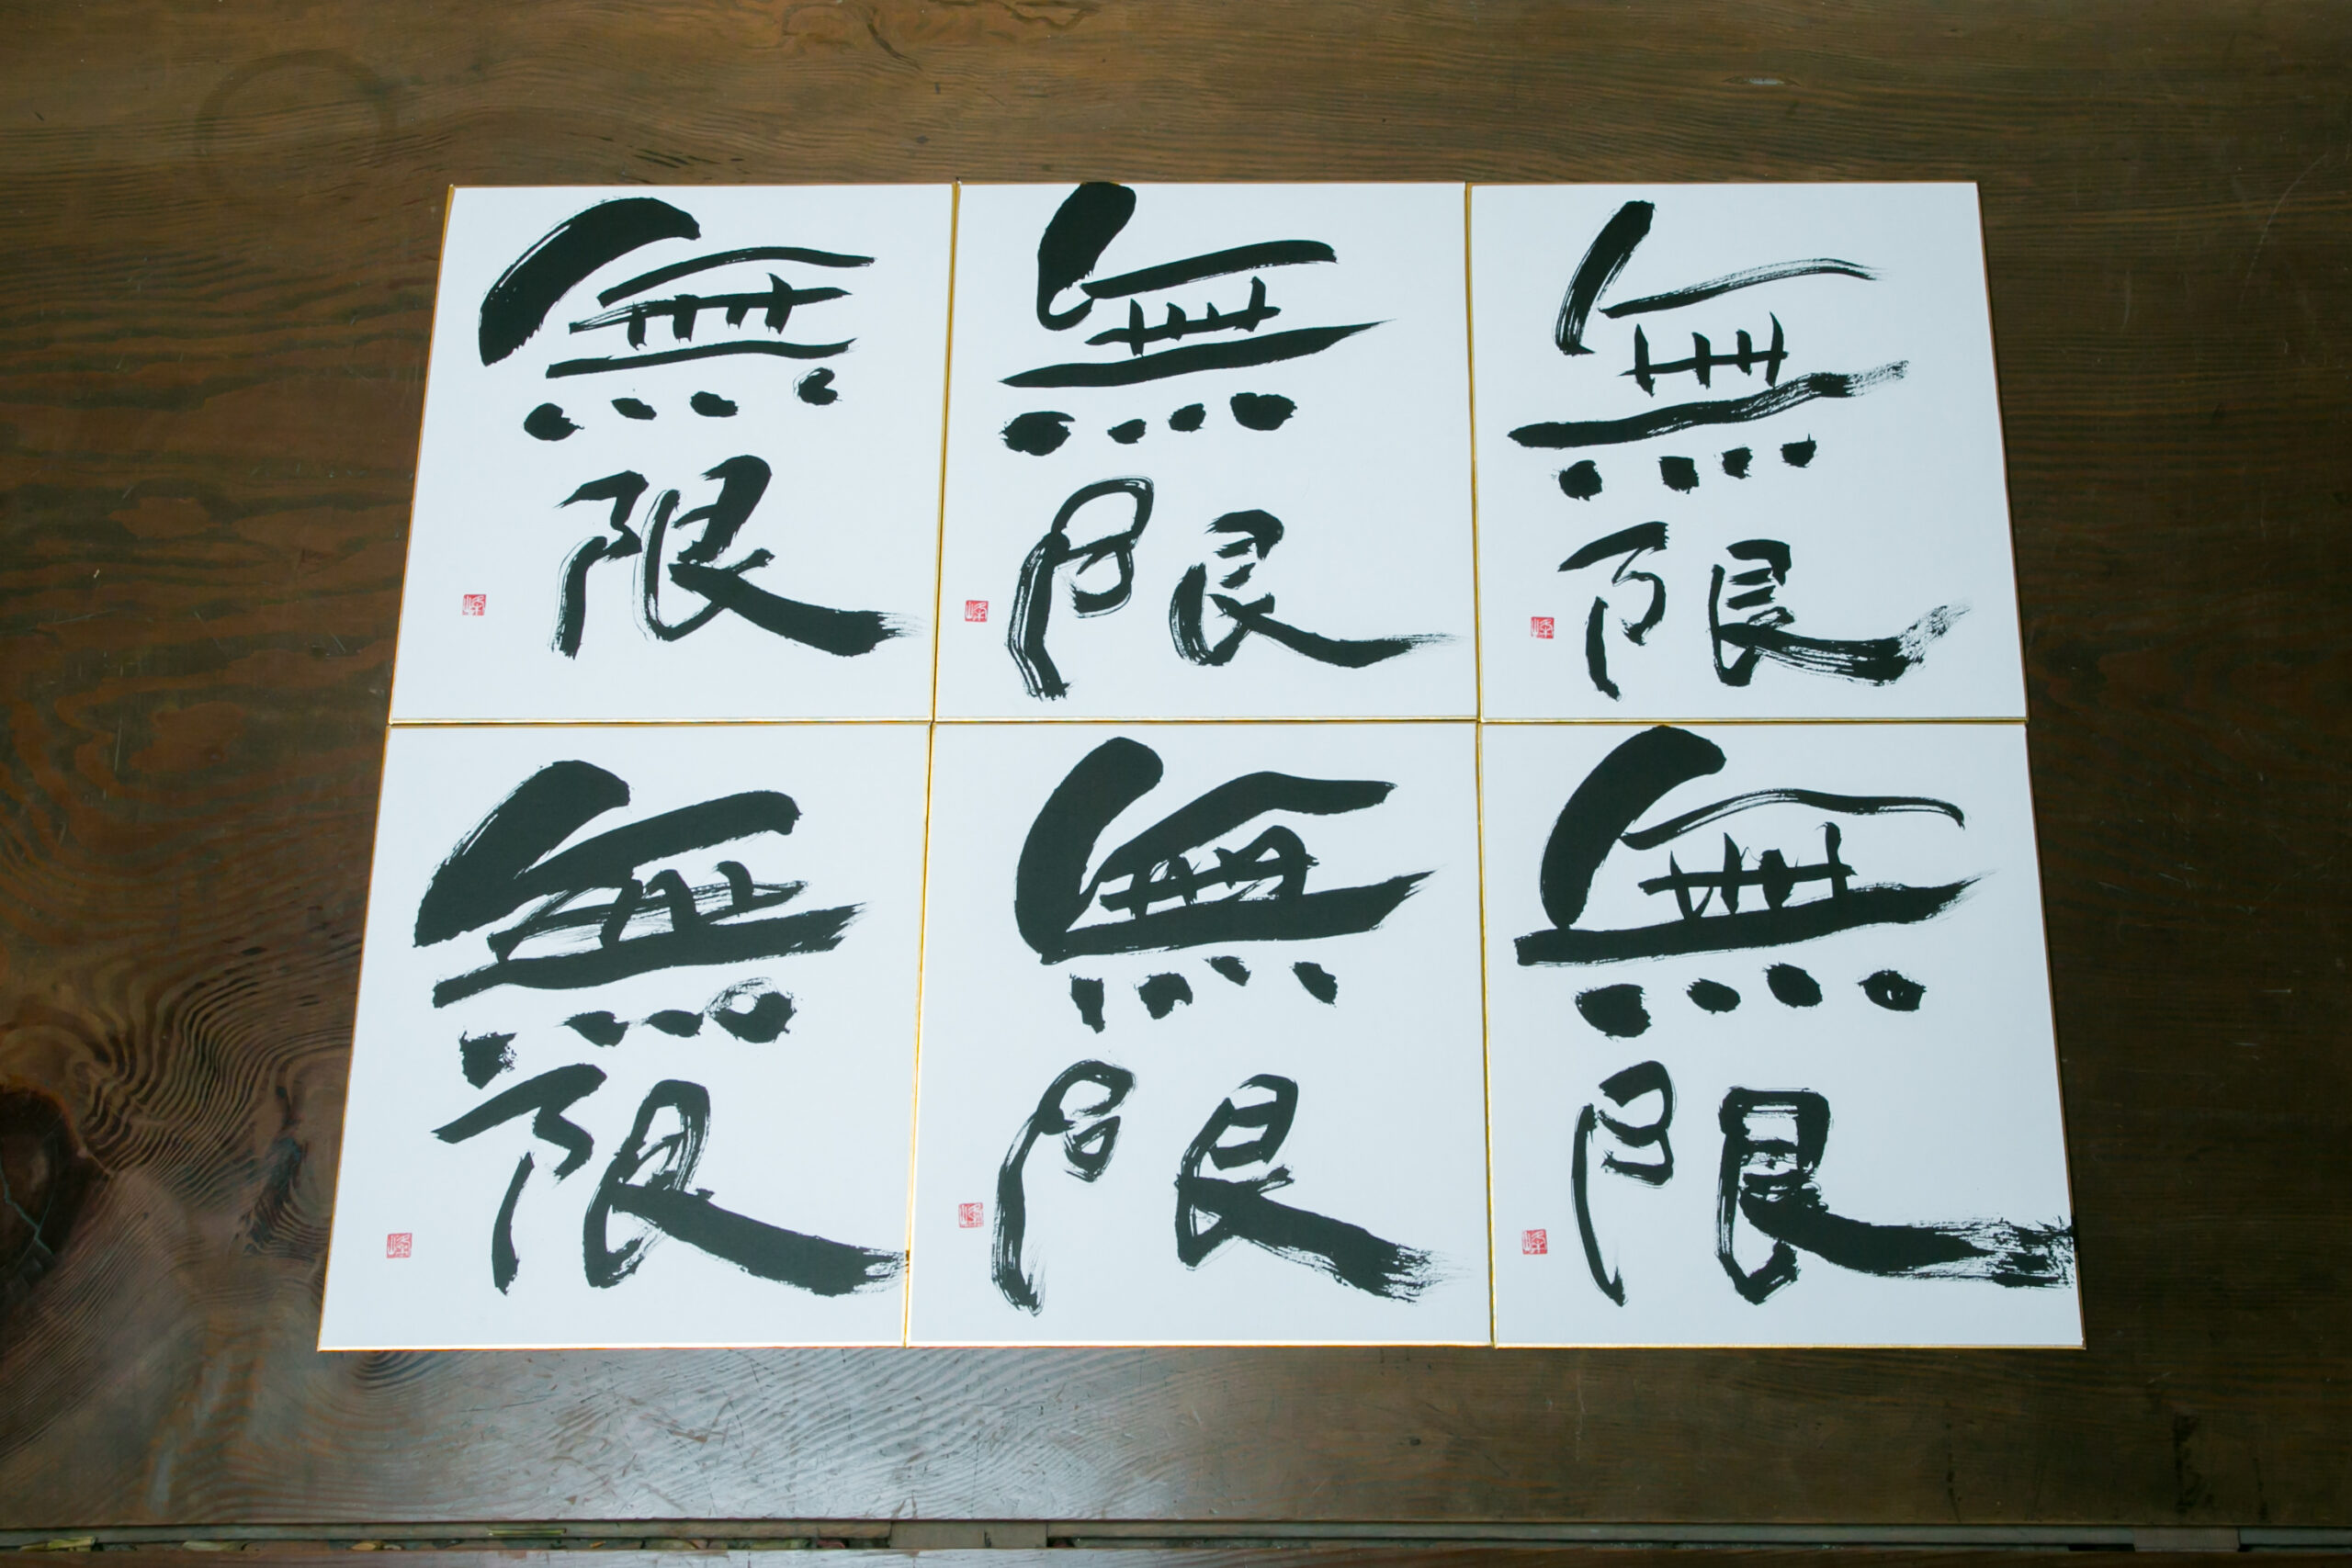 無限
無限
無限
無限
無限
無限